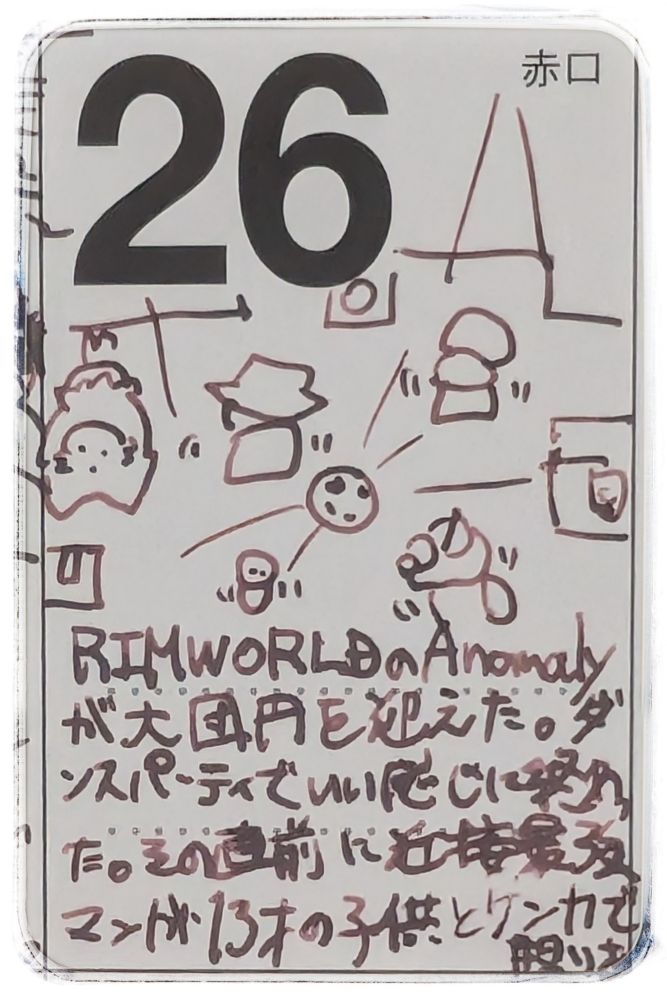 26
赤口
RIMWORLDのAnomaly
が大団円を迎えた。ダ
ンスパーティでいい感じに終わっ
た。その直前に近接最強
マンが13才の子供とケンカで